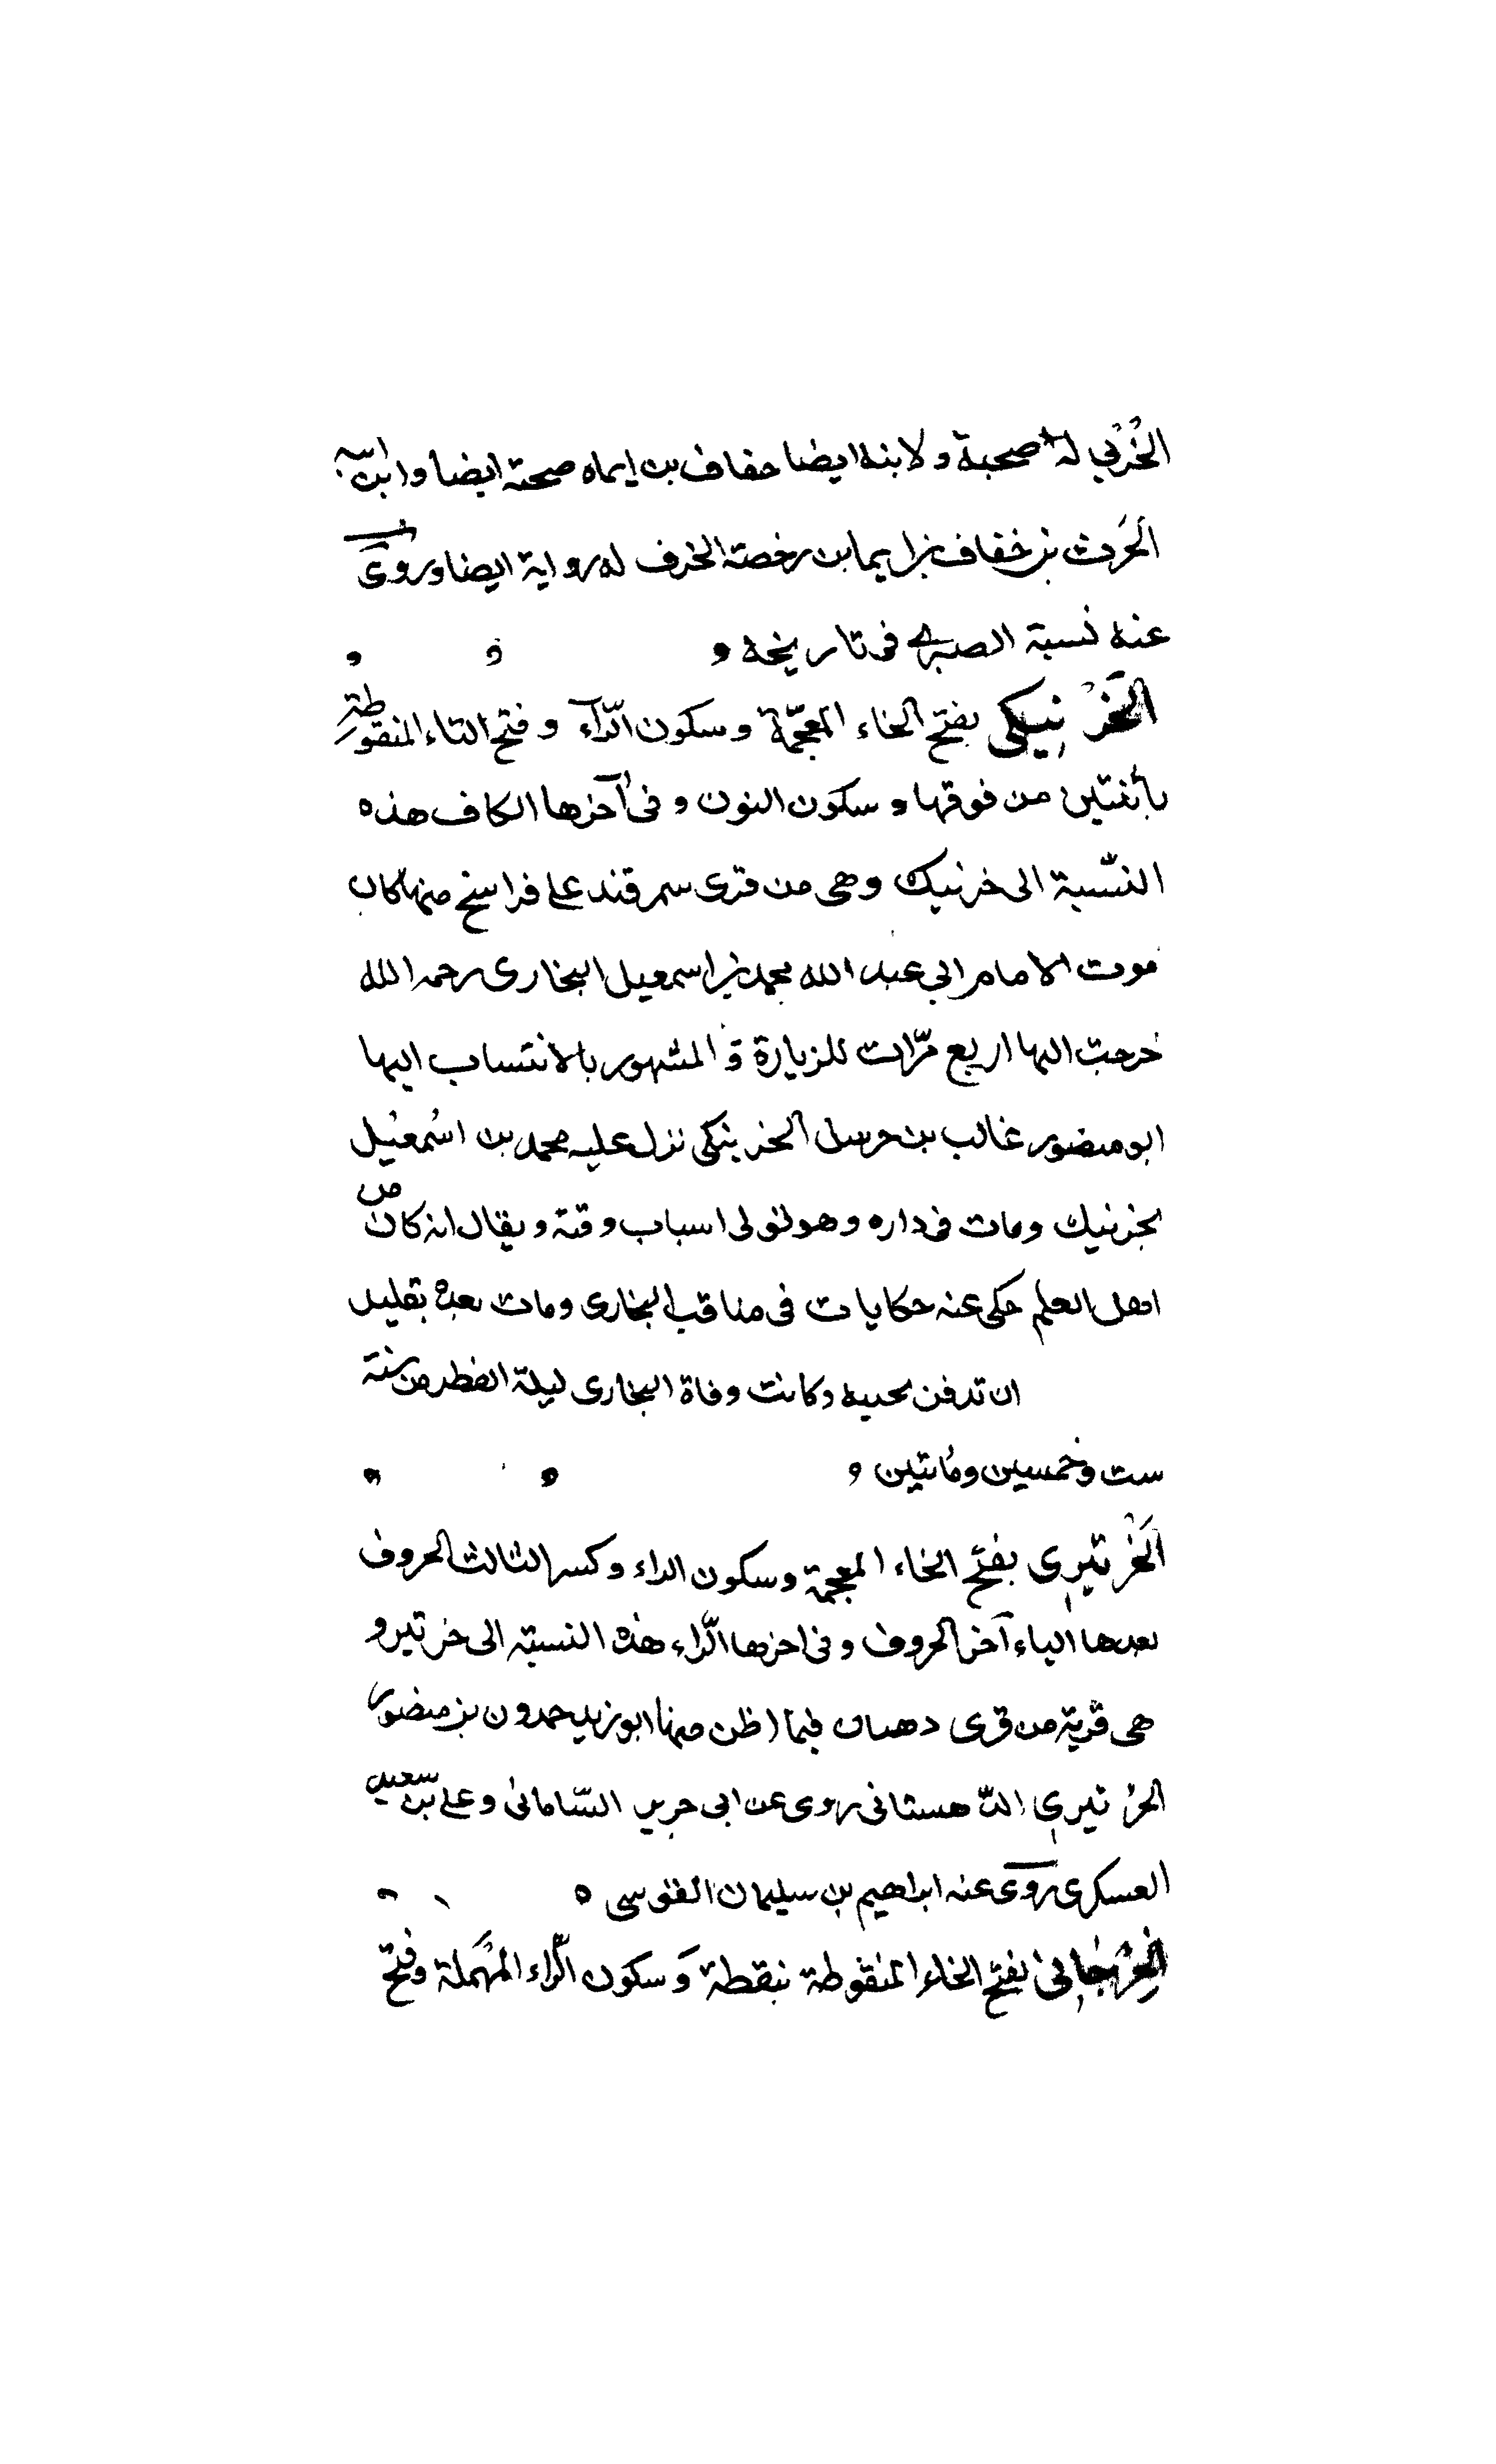 الخُرْبي له صحبة ولابنه ايضا خفاف بن ايماء صحبة ايضا وابن ابنه
الحَرث بن خفاف بن ايما بن رخصة الخرف له رواية ايضا وروى
عنه نسبة الصبرى فى تاريخه
الخَرْتنِيكى بفتح الخاء المعجّمة وسكون الرّآء وفتح التاء المنقوطة
بأثنتين من فوقها و سكون النون و فى آخرها الكاف هذه
النسّبة الى خرتنيك وهى من قرى سمرقند على فراسخ منها كان
موت الامام ابي عبد الله محمد بن اسمعيل البخارى رحمه الله
خرجت اليها اربع مرّات للزيارة و المشهور بالانتساب اليها
ابو منصور غالب بن جبرسل الخرتنكى نزل عليه محمد بن اسمعيل
بخرتنيك ومات فى داره وهو تولى اسباب وقته ويقال انه كان من
اهل العلم حكى عنه حكايات فى مناقب البخارى ومات بعده بقليل
ان تدفن بجنبه وكانت وفاة البخارى ليلة الفطر من سنة
ست وخمسين ومُاتتين
الخَرْتيرِى بفتح الخاء المعجمة وسكون الراء وكسر الثالث الحروف
بعدها الياء آخر الحروف و فى اخرها الرّاء هذه النسبة الى خرتير و
هى قرية من قرى دهستان فيما اظن منها ابو زيد حمدون بن منصور
الخرْتيرى الدّهستانى روى عن ابى جرير السّامانى وعلى بن سعيد
العسكرى روى عنه ابراهيم بن سليمان القوسى
الخَرْجَانى بفتح الخاء المنقوطة بنقطة وَسكون الرّاء المهْملة وفتح